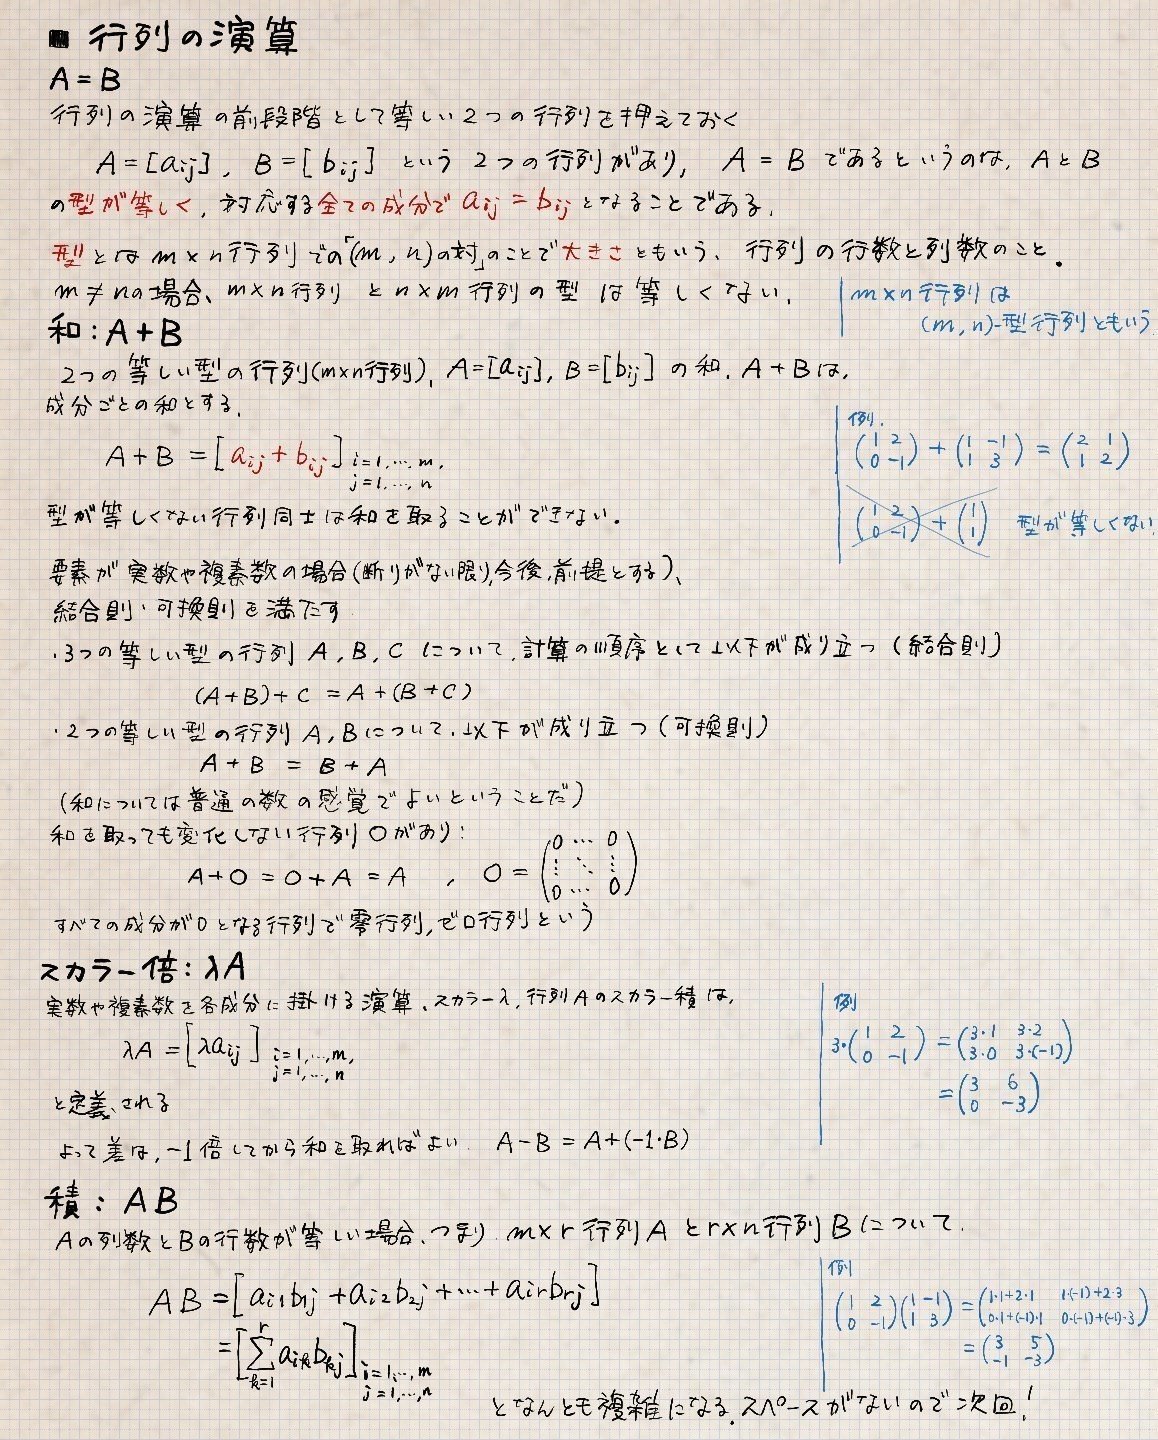 ■ 行列の演算
A = B
行列の演算の前段階として等しい2つの行列を押えておく
A = [aij], B = [bij] という2つの行列があり, A = B であるというのは, AとB
の型が等しく, 対応する全ての成分で aij = bij となることである.
型とは m×n行列での「(m, n)の対」のことで大きさともいう. 行列の行数と列数のこと.
m ≠ nの場合、m×n行列 と n×m 行列の型 は 等しくない.
m×n行列は
(m, n)-型行列ともいう
和: A+B
2つの等しい型の行列(m×n行列), A=[aij], B=[bij] の和. A+B は,
成分ごとの和とする.
A+B = [aij + bij] i=1,…,m, j=1,…,n
例.
(1 2 / 0 -1) + (1 -1 / 1 3) = (2 1 / 1 2)
型が等しくない行列同士は和を取ることができない.
(1 2 / 0 -1) + (1 / 1) 型が等しくない.
要素が実数や複素数の場合(断りがない限り,今後,前提とする)、
結合則・可換則を満たす
・3つの等しい型の行列 A, B, C について, 計算の順序として以下が成り立つ (結合則)
(A+B)+C = A+(B+C)
・2つの等しい型の行列 A, Bについて, 以下が成り立つ (可換則)
A + B = B + A
(和については普通の数の感覚でよいということだ)
和を取っても変化しない行列 O があり:
A+O = O+A = A , O = (0 … 0 / ⋮ ⋱ ⋮ / 0 … 0)
すべての成分が0となる行列で零行列, ゼロ行列という
スカラー倍: λA
実数や複素数を各成分に掛ける演算. スカラーλ, 行列Aのスカラー積は,
λA = [λaij] i=1,…,m, j=1,…,n
例
3・(1 2 / 0 -1) = (3・1 3・2 / 3・0 3・(-1))
= (3 6 / 0 -3)
と定義される
よって差は, -1倍してから和を取ればよい. A-B = A+(-1・B)
積: AB
Aの列数とBの行数が等しい場合, つまり m×r 行列 A と r×n行列 B について.
AB = [ai1b1j + ai2b2j + … + airbrj]
= [Σ r k=1 aikbkj] i=1,…,m j=1,…,n
例
(1 2 / 0 -1)(1 -1 / 1 3) = (1・1+2・1 1・(-1)+2・3 / 0・1+(-1)・1 0・(-1)+(-1)・3)
= (3 5 / -1 -3)
となんとも複雑になる. スペースがないので次回!